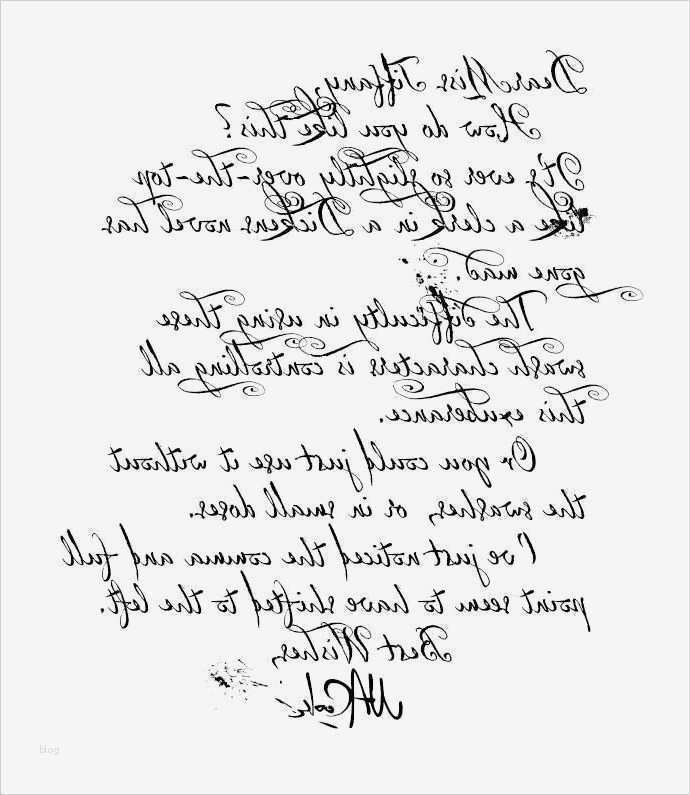 Dear Miss Tiffany,
How do you like this?
It's ever so slightly over-the-top
like a clerk in a Dickens novel has
gone mad.
The difficulty in using these
swash characters is controlling all
this exuberance.
Or you could just use it without
the swashes, or in small doses.
I've just noticed the comma and full
point seem to have shifted to the left.
Best Wishes,
blog